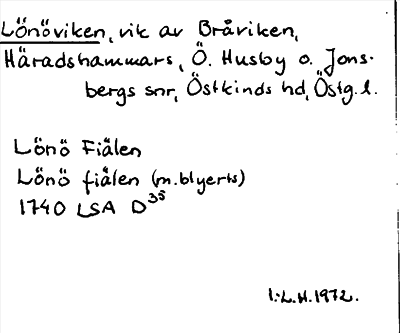 Lönöviken, vik av Bråviken,
Häradshammars, Ö. Husby o. Jons-
bergs snr, Östkinds hd, Östg. l.
Lönö Fiälen
Lönö fiälen (m. blyerts)
1740 LSA D³⁵
I:L.H. 1972.